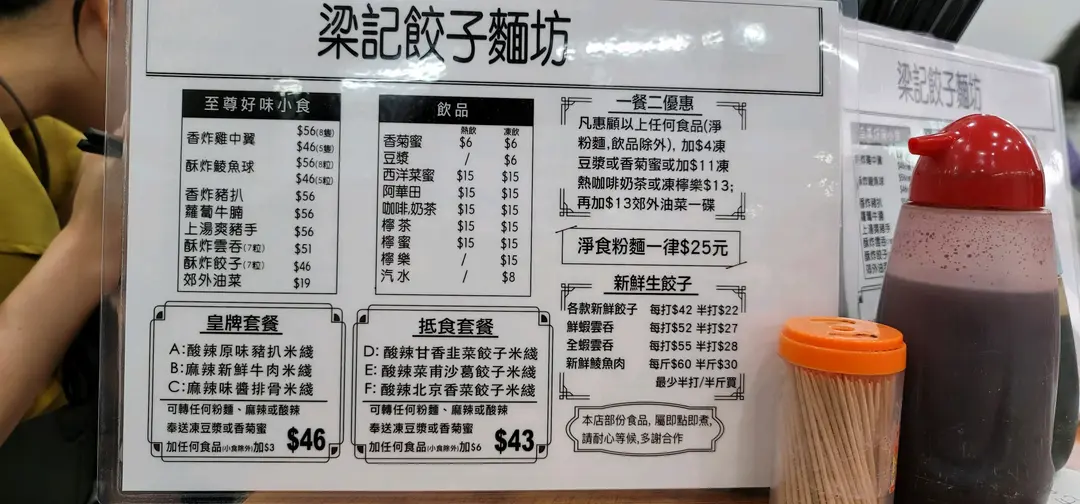 梁記餃子麵坊
至尊好味小食
香炸雞中翼 $56(8隻)
$46(5隻)
酥炸鯪魚球 $56(8粒)
$46(5粒)
香炸豬扒 $56
蘿蔔牛腩 $56
上湯爽豬手 $56
酥炸雲吞(7粒) $51
酥炸餃子(7粒) $46
郊外油菜 $19
飲品
熱飲 凍飲
香菊蜜 $6 $6
豆漿 / $6
西洋菜蜜 $15 $15
阿華田 $15 $15
咖啡,奶茶 $15 $15
檸茶 $15 $15
檸蜜 $15 $15
檸樂 / $15
汽水 / $8
一餐二優惠
凡惠顧以上任何食品(淨
粉麵,飲品除外), 加$4凍
豆漿或香菊蜜或加$11凍
熱咖啡奶茶或凍檸樂$13;
再加$13郊外油菜一碟
淨食粉麵一律$25元
新鮮生餃子
各款新鮮餃子 每打$42 半打$22
鮮蝦雲吞 每打$52 半打$27
全蝦雲吞 每打$55 半打$28
新鮮鯪魚肉 每斤$60 半斤$30
最少半打/半斤買
本店部份食品, 屬即點即煮,
請耐心等候,多謝合作
皇牌套餐
A:酸辣原味豬扒米綫
B:麻辣新鮮牛肉米綫
C:麻辣味醬排骨米綫
可轉任何粉麵、麻辣或酸辣
奉送凍豆漿或香菊蜜
加任何食品(小食除外)加$3 $46
抵食套餐
D:酸辣甘香韭菜餃子米綫
E:酸辣菜甫沙葛餃子米綫
F:酸辣北京香菜餃子米綫
可轉任何粉麵、麻辣或酸辣
奉送凍豆漿或香菊蜜
加任何食品(小食除外)加$6 $43
梁記餃子麵坊